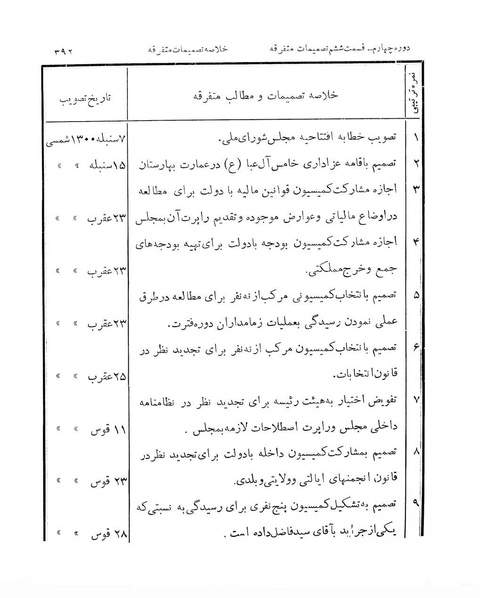 دوره چهارم - قسمت ششم تصمیمات متفرقه خلاصه تصمیمات متفرقه ۳۹۲
نمره ترتیبی خلاصه تصمیمات و مطالب متفرقه تاریخ تصویب
۱ تصویب خطابه افتتاحیه مجلس شورای ملی. ۷ سنبله ۱۳۰۰ شمسی
۲ تصمیم باقامه عزاداری خامس آل عبا (ع) در عمارت بهارستان ۱۵ سنبله » »
۳ اجازه مشارکت کمیسیون قوانین مالیه با دولت برای مطالعه
در اوضاع مالیاتی و عوارض موجوده و تقدیم راپرت آن بمجلس ۲۳ عقرب » »
۴ اجازه مشارکت کمیسیون بودجه بادولت برای تهیه بودجه های
جمع و خرج مملکتی. ۲۳ عقرب » »
۵ تصمیم بانتخاب کمیسیونی مرکب از نه نفر برای مطالعه در طرق
عملی نمودن رسیدگی بعملیات زمامداران دوره فترت. ۲۳ عقرب » »
۶ تصمیم بانتخاب کمیسیون مرکب از نه نفر برای تجدید نظر در
قانون انتخابات. ۲۵ عقرب » »
۷ تفویض اختیار به هیئت رئیسه برای تجدید نظر در نظامنامه
داخلی مجلس و راپرت اصطلاحات لازمه بمجلس . ۱۱ قوس » »
۸ تصمیم بمشارکت کمیسیون داخله بادولت برای تجدید نظر در
قانون انجمنهای ایالتی و ولایتی و بلدی. ۲۳ قوس » »
۹ تصمیم به تشکیل کمیسیون پنج نفری برای رسیدگی به نسبتی که
یکی از جراید بآقای سید فاضل داده است . ۲۸ قوس » »